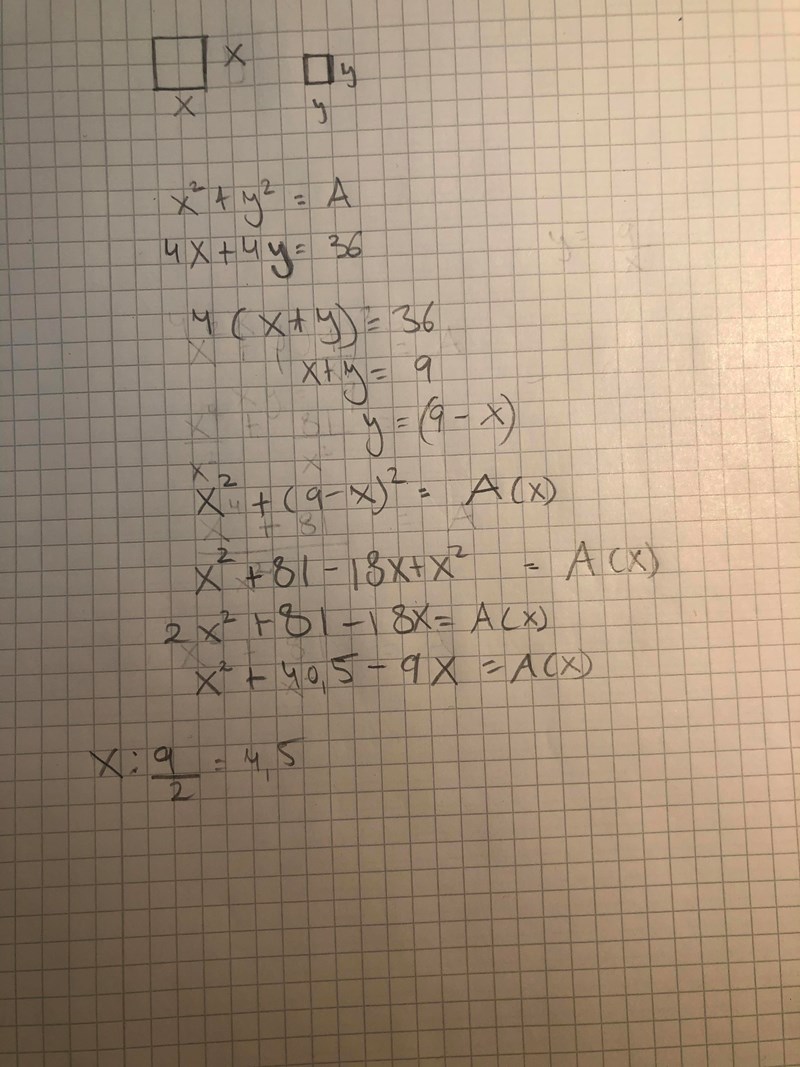 x
x
y
y
x² + y² = A
4x+4y= 36
4 (x+y) = 36
x+y = 9
y = (9 - x)
x² + (9-x)² = A(x)
x² +81 - 18x+x² = A(x)
2x² +81 -18x= A(x)
x² + 40,5 - 9x = A(x)
x: 9/2 = 4,5